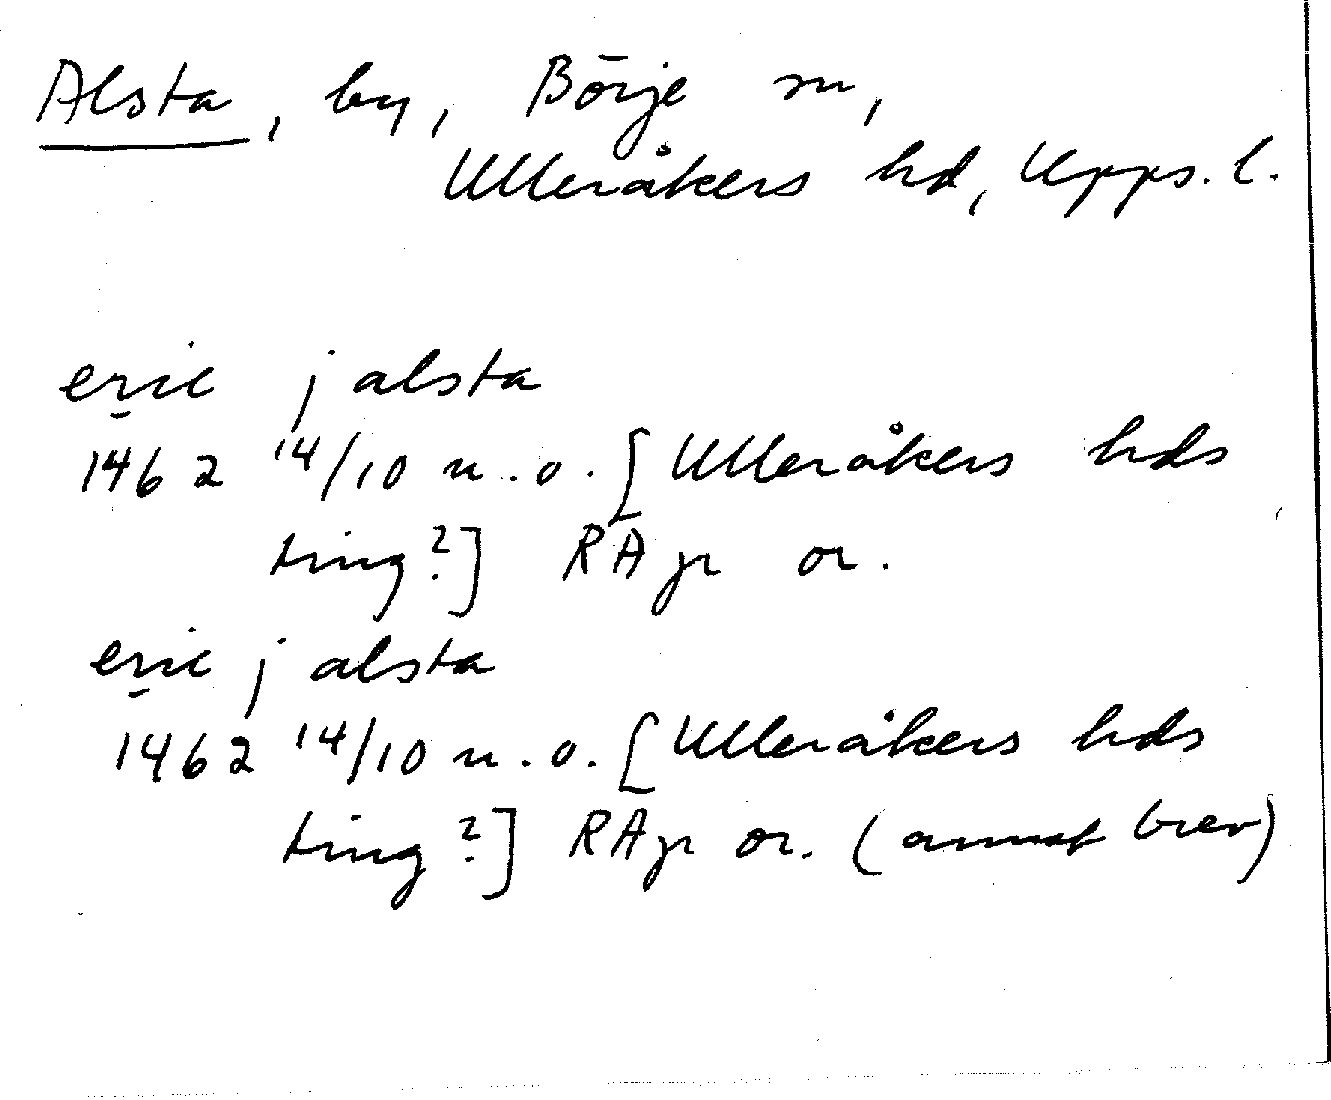 Alsta, by, Börje sn,
Ulleråkers hd, Upps. l.
eric j alsta
1462 14/10 u.o. [Ulleråkers hds
ting?] RAp or.
eric j alsta
1462 14/10 u.o. [Ulleråkers hds
ting?] RAp or. (annat brev)